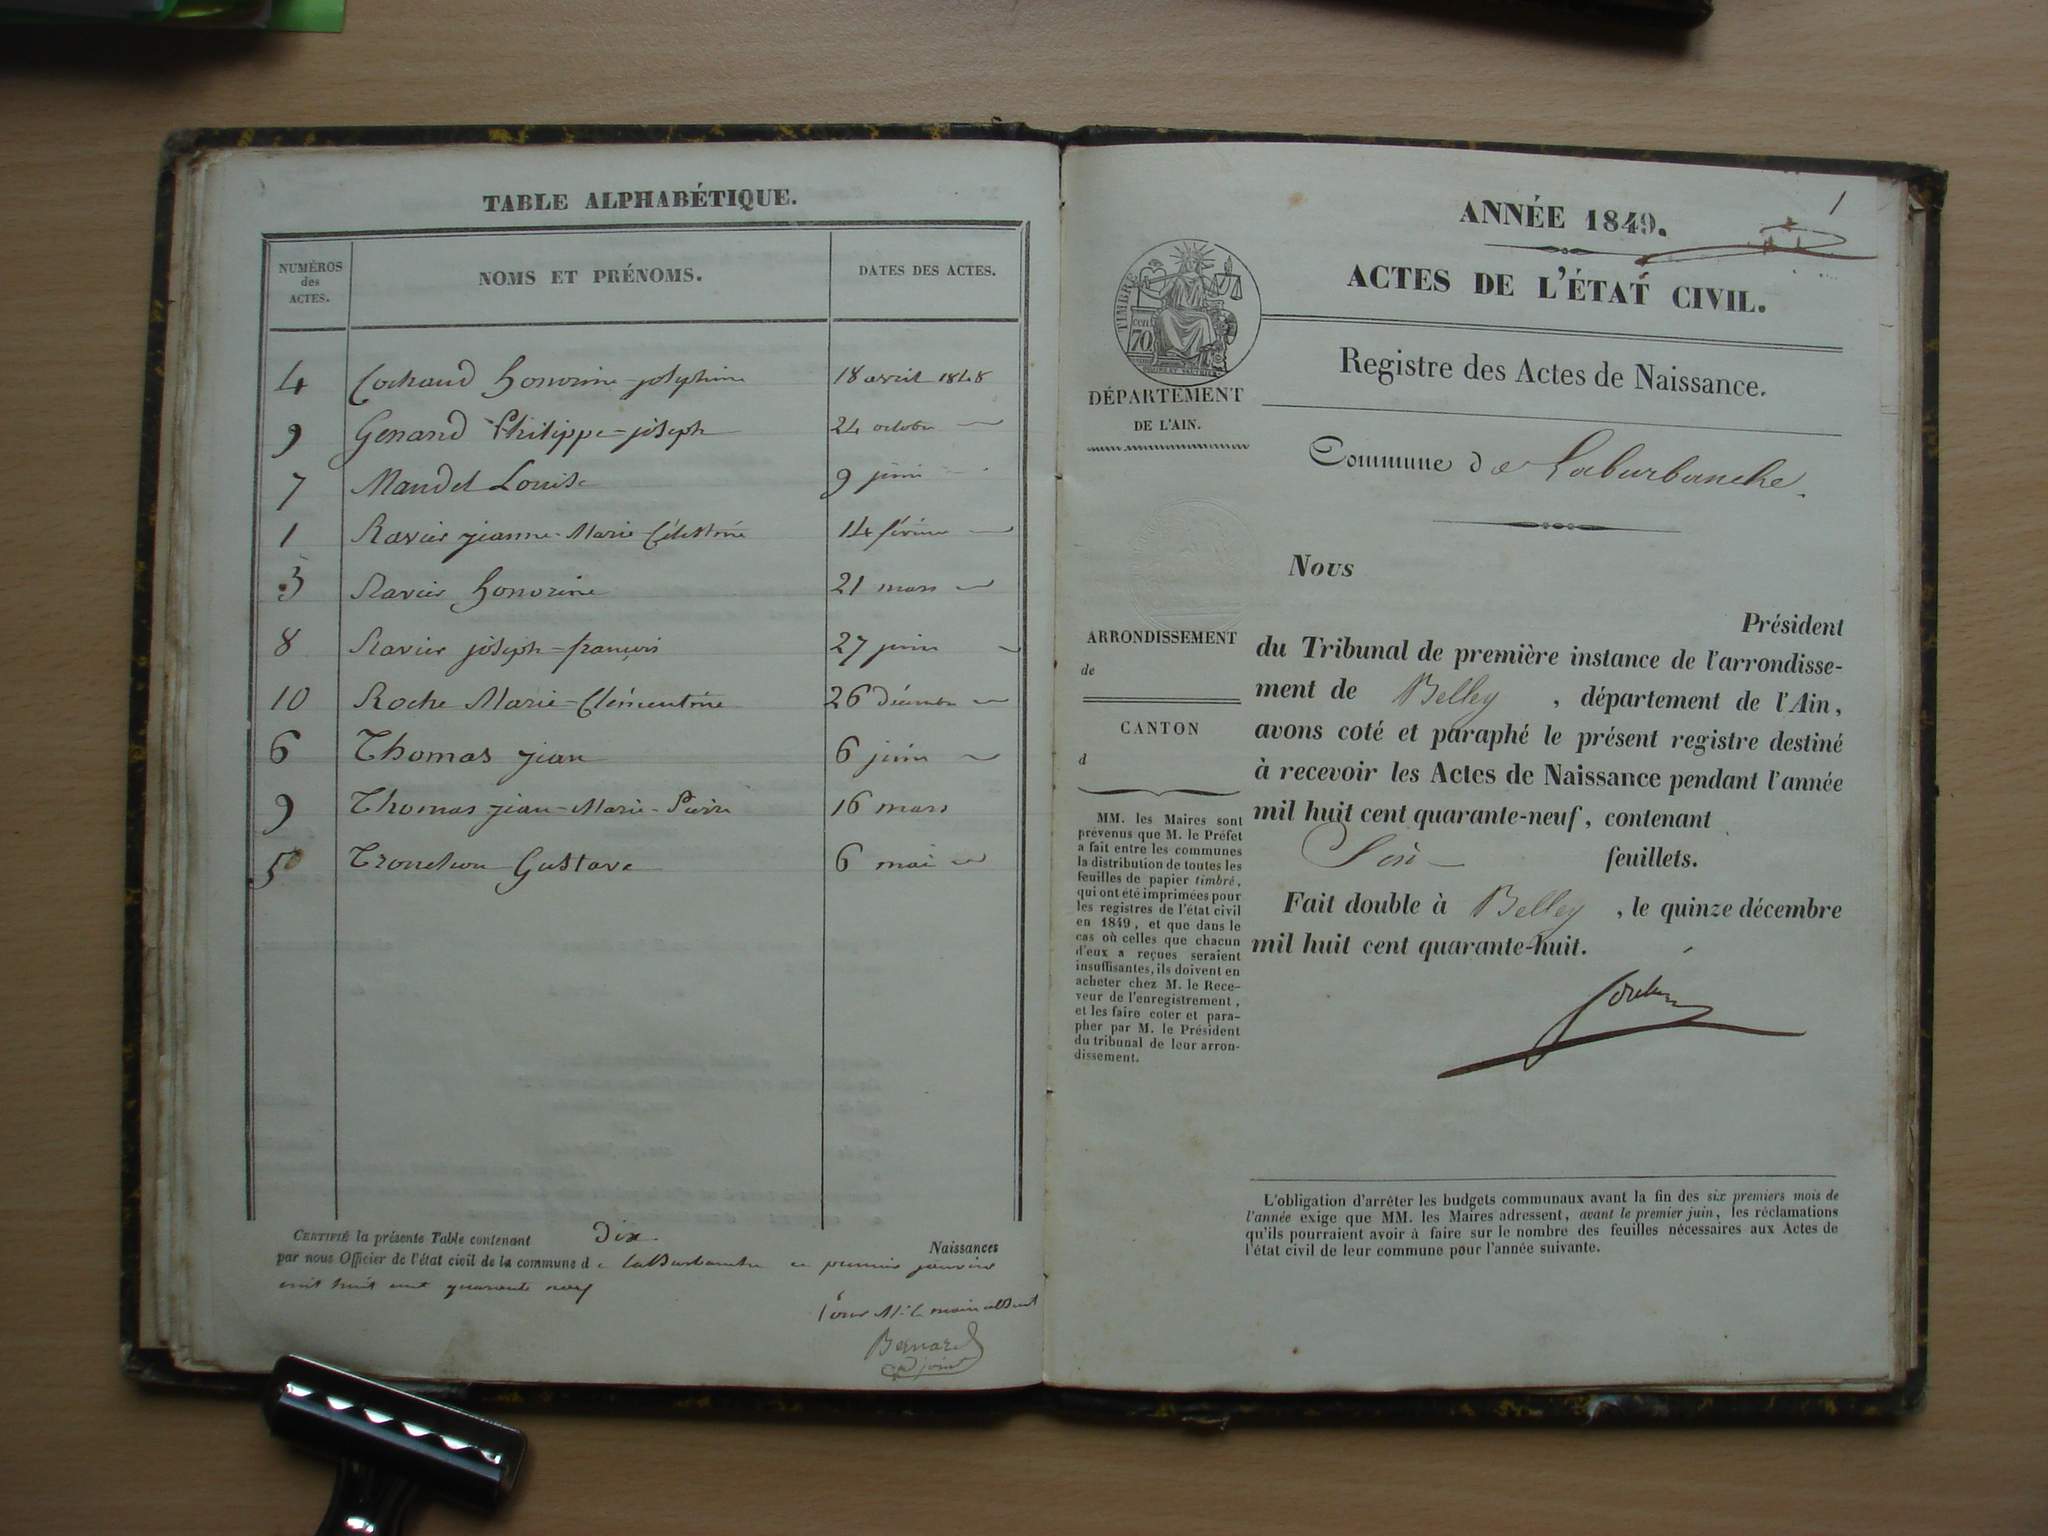 TABLE ALPHABÉTIQUE.
NUMÉROS des ACTES. NOMS ET PRÉNOMS. DATES DES ACTES.
4 Cochaud honorine-joséphine 18 avril 1848
9 Genand Philippe-joseph 24 octobre
7 Maudet Louise 9 juin
1 Ravier jeanne-Marie-Célestine 14 février
3 Ravier honorine 21 mars
8 Ravier joseph-françois 27 juin
10 Roche Marie-Clémentine 26 décembre
6 Thomas jean 6 juin
9 Thomas jean-Marie-Pierre 16 mars
5 Tronchon Gustave 6 mai
CERTIFIÉ la présente Table contenant Dix Naissances
par nous Officier de l'état civil de la commune de laBurbanche ce premier janvier
mil huit cent quarante neuf
Pour Mr le maire absent
Bernard
adjoint
1
ANNÉE 1849.
ACTES DE L'ÉTAT CIVIL.
TIMBRE
cent
70
Registre des Actes de Naissance.
DÉPARTEMENT
DE L'AIN.
Commune de Laburbanche.
ARRONDISSEMENT
de
CANTON
d
MM. les Maires sont
prévenus que M. le Préfet
a fait entre les communes
la distribution de toutes les
feuilles de papier timbré,
qui ont été imprimées pour
les registres de l'état civil
en 1849, et que dans le
cas où celles que chacun
d'eux a reçues seraient
insuffisantes, ils doivent en
acheter chez M. le Rece-
veur de l'enregistrement,
et les faire coter et para-
pher par M. le Président
du tribunal de leur arron-
dissement.
Nous
Président
du Tribunal de première instance de l'arrondisse-
ment de Belley, département de l'Ain,
avons coté et paraphé le présent registre destiné
à recevoir les Actes de Naissance pendant l'année
mil huit cent quarante-neuf, contenant
feuillets.
Fait double à Belley, le quinze décembre
mil huit cent quarante-huit.
L'obligation d'arrêter les budgets communaux avant la fin des six premiers mois de
l'année exige que MM. les Maires adressent, avant le premier juin, les réclamations
qu'ils pourraient avoir à faire sur le nombre des feuilles nécessaires aux Actes de
l'état civil de leur commune pour l'année suivante.